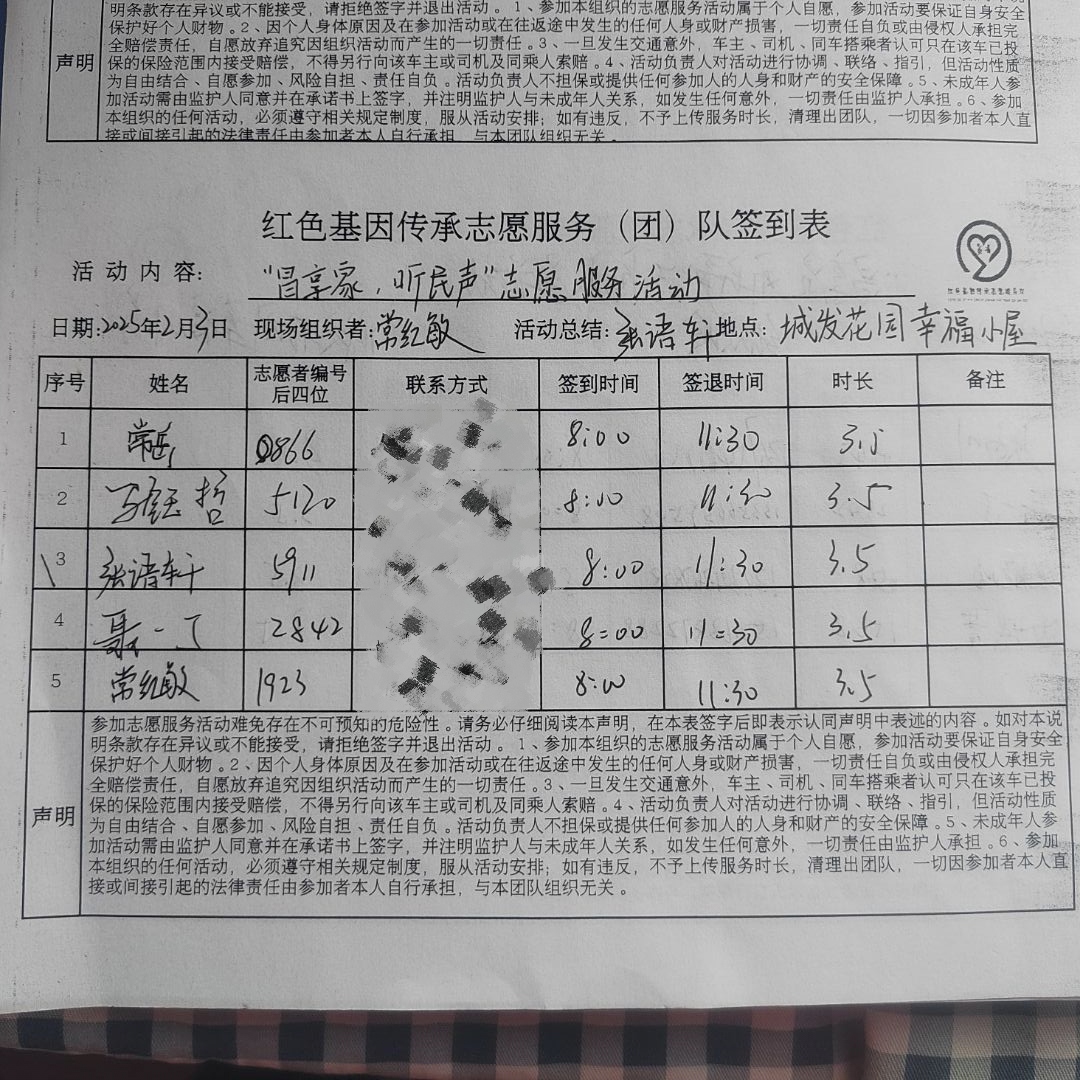 明条款存在异议或不能接受，请拒绝签字并退出活动。1、参加本组织的志愿服务活动属于个人自愿，参加活动要保证自身安全
保护好个人财物。2、因个人身体原因及在参加活动或在往返途中发生的任何人身或财产损害，一切责任自负或由侵权人承担完
全赔偿责任，自愿放弃追究因组织活动而产生的一切责任。3、一旦发生交通意外，车主、司机、同车搭乘者认可只在该车已投
保的保险范围内接受赔偿，不得另行向该车主或司机及同乘人索赔。4、活动负责人对活动进行协调、联络、指引，但活动性质
声明
为自由结合、自愿参加、风险自担、责任自负。活动负责人不担保或提供任何参加人的人身和财产的安全保障。5、未成年人参
加活动需由监护人同意并在承诺书上签字，并注明监护人与未成年人关系，如发生任何意外，一切责任由监护人承担。6、参加
本组织的任何活动，必须遵守相关规定制度，服从活动安排；如有违反，不予上传服务时长，清理出团队，一切因参加者本人直
接或间接引起的法律责任由参加者本人自行承担，与本团队组织无关。
红色基因传承志愿服务（团）队签到表
活动内容： 享家，听民声”志愿服务活动
日期：2025年2月3日 现场组织者：常红敏 活动总结：张语轩 地点：城发花园幸福小屋
序号 姓名 志愿者编号后四位 联系方式 签到时间 签退时间 时长 备注
1 常 0866 8:00 11:30 3.5
2 哲 5120 8:00 11:30 3.5
3 张语轩 5911 8:00 11:30 3.5
4 聂一丁 2842 8:00 11:30 3.5
5 常红敏 1923 8:00 11:30 3.5
声明
参加志愿服务活动难免存在不可预知的危险性。请务必仔细阅读本声明，在本表签字后即表示认同声明中表述的内容。如对本说
明条款存在异议或不能接受，请拒绝签字并退出活动。1、参加本组织的志愿服务活动属于个人自愿，参加活动要保证自身安全
保护好个人财物。2、因个人身体原因及在参加活动或在往返途中发生的任何人身或财产损害，一切责任自负或由侵权人承担完
全赔偿责任，自愿放弃追究因组织活动而产生的一切责任。3、一旦发生交通意外，车主、司机、同车搭乘者认可只在该车已投
保的保险范围内接受赔偿，不得另行向该车主或司机及同乘人索赔。4、活动负责人对活动进行协调、联络、指引，但活动性质
为自由结合、自愿参加、风险自担、责任自负。活动负责人不担保或提供任何参加人的人身和财产的安全保障。5、未成年人参
加活动需由监护人同意并在承诺书上签字，并注明监护人与未成年人关系，如发生任何意外，一切责任由监护人承担。6、参加
本组织的任何活动，必须遵守相关规定制度，服从活动安排；如有违反，不予上传服务时长，清理出团队，一切因参加者本人直
接或间接引起的法律责任由参加者本人自行承担，与本团队组织无关。